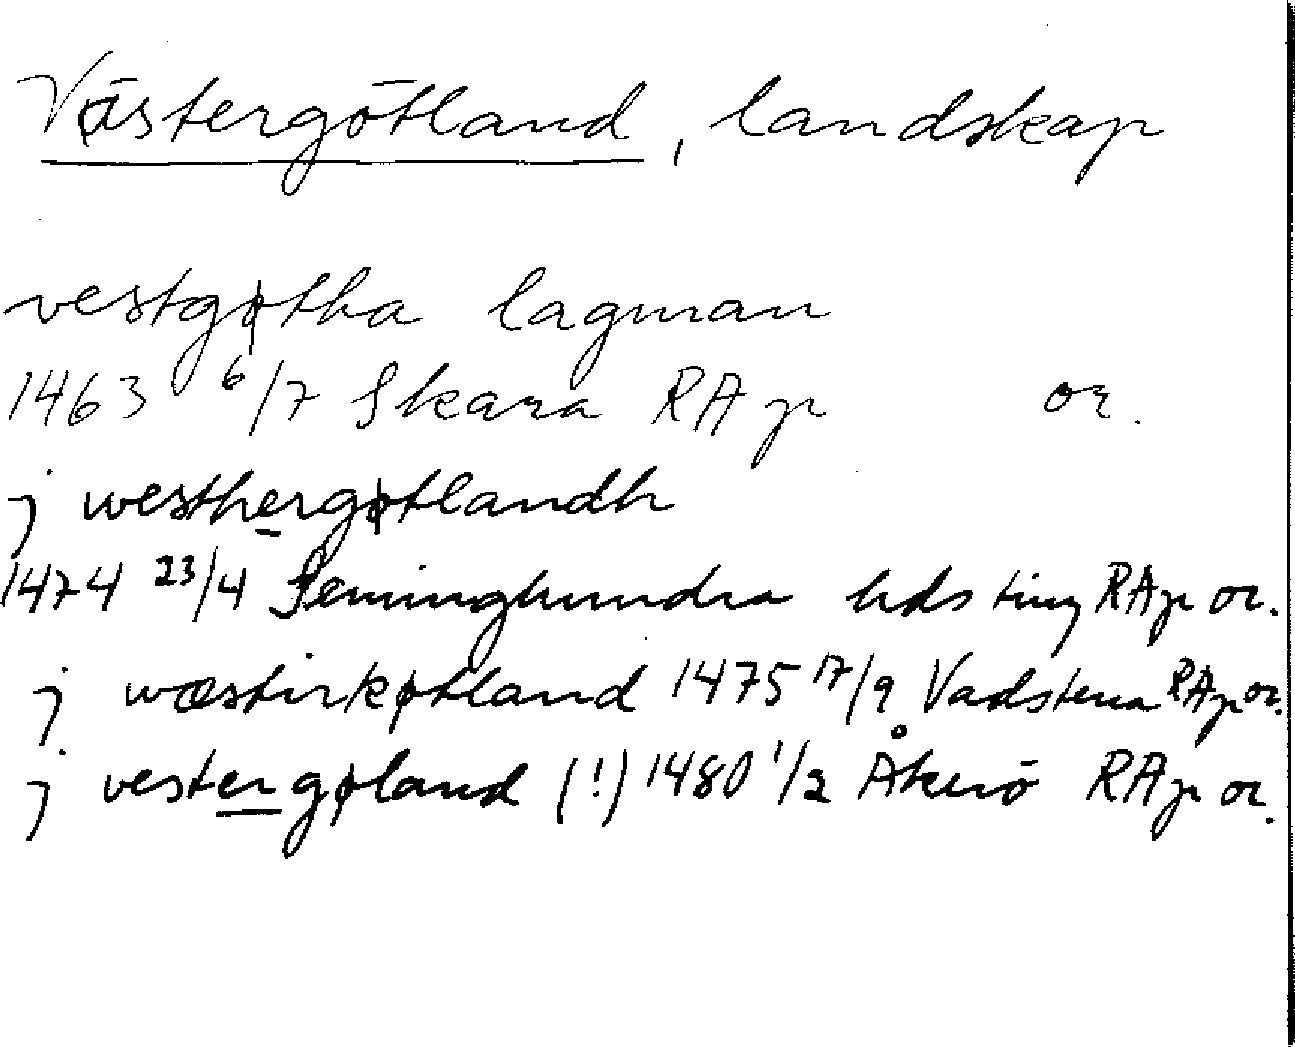 Västergötland, landskap
vestgøtha lagman
1463 6/7 Skara RAp or.
j westhergøtlandh
1474 23/4 Seminghundra hds ting RAp or.
j wæstirkøtland 1475 17/9 Vadstena RAp or.
j vestergøland (!) 1480 1/2 Åkerö RAp or.